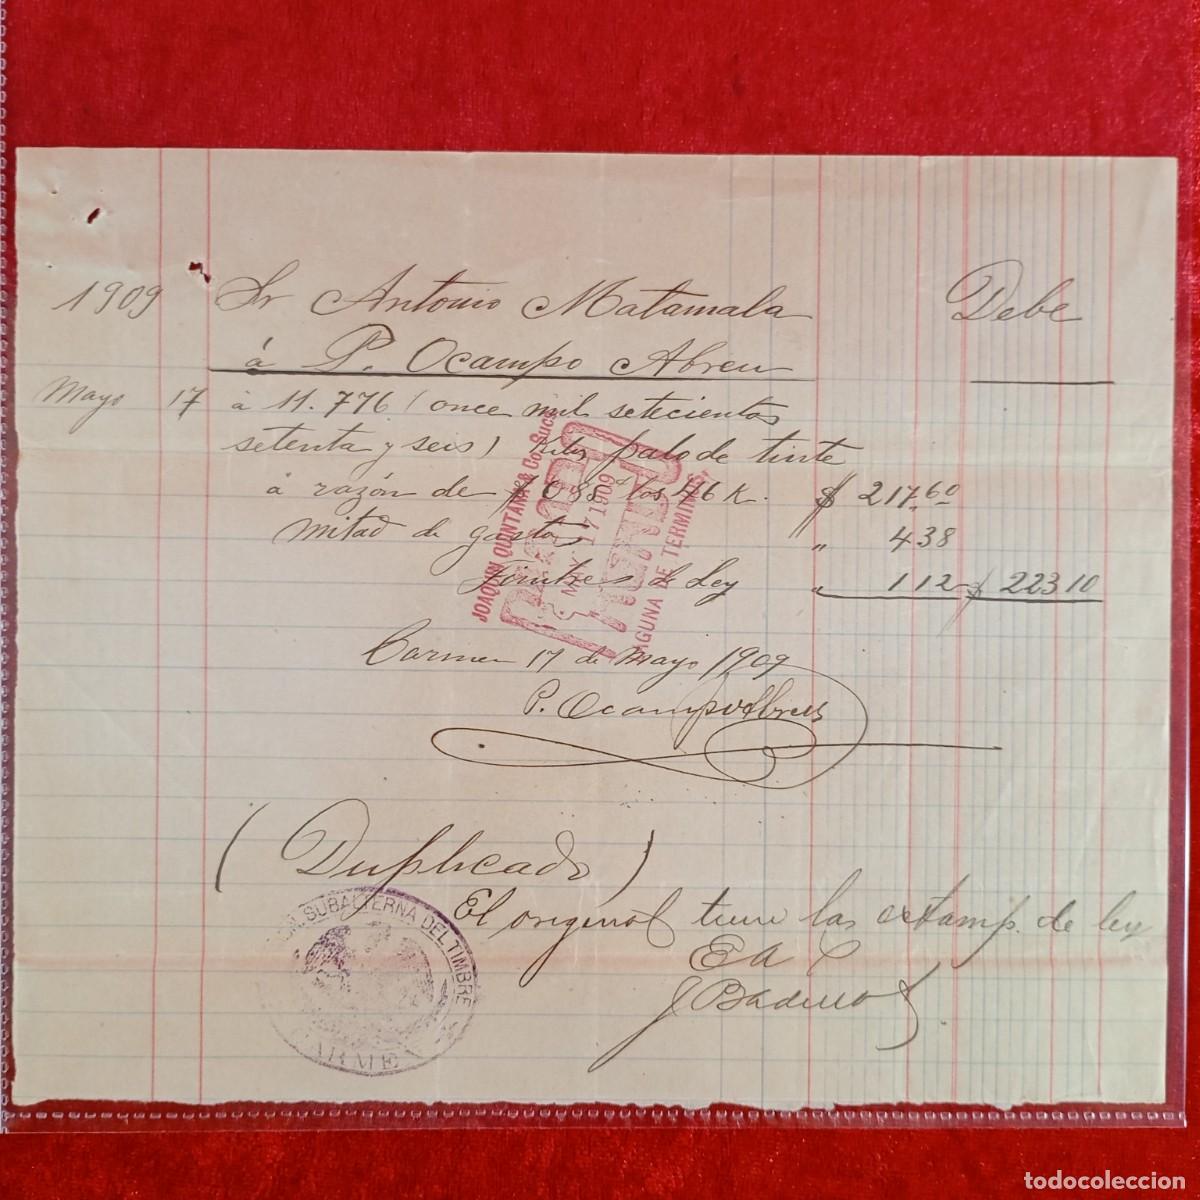 1909 Sr Antonio Matamala Debe
á P. Ocampo Abreu
Mayo 17 á 11.776 (once mil setecientos
setenta y seis) Kilos palo de tinte
á razón de $ 0 85 los 46 K. $ 217.60
mitad de gastos " 4 38
Timbres de Ley " 1 12 $ 223 10
JOAQUIN QUINTANA & Co. Sucs.
MAY 17 1909
LAGUNA DE TERMINOS.
Carmen 17 de Mayo 1909
P. Ocampo Abreu
(Duplicado)
El original tiene las estamp. de ley
E A
SUBALTERNA DEL TIMBRE
CARMEN
todocoleccion